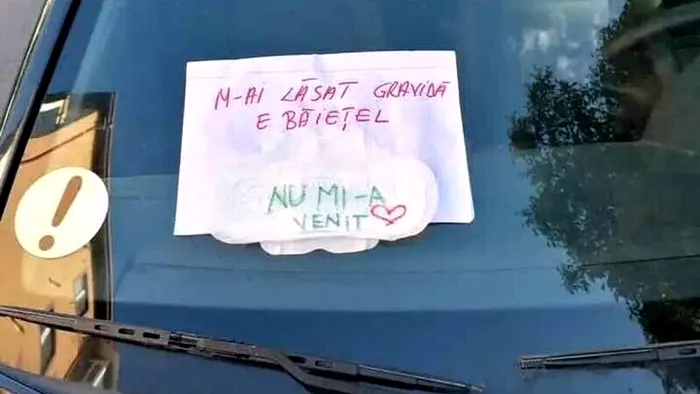 M-AI LĂSAT GRAVIDĂ
E BĂIEȚEL
NU MI-A
VENIT